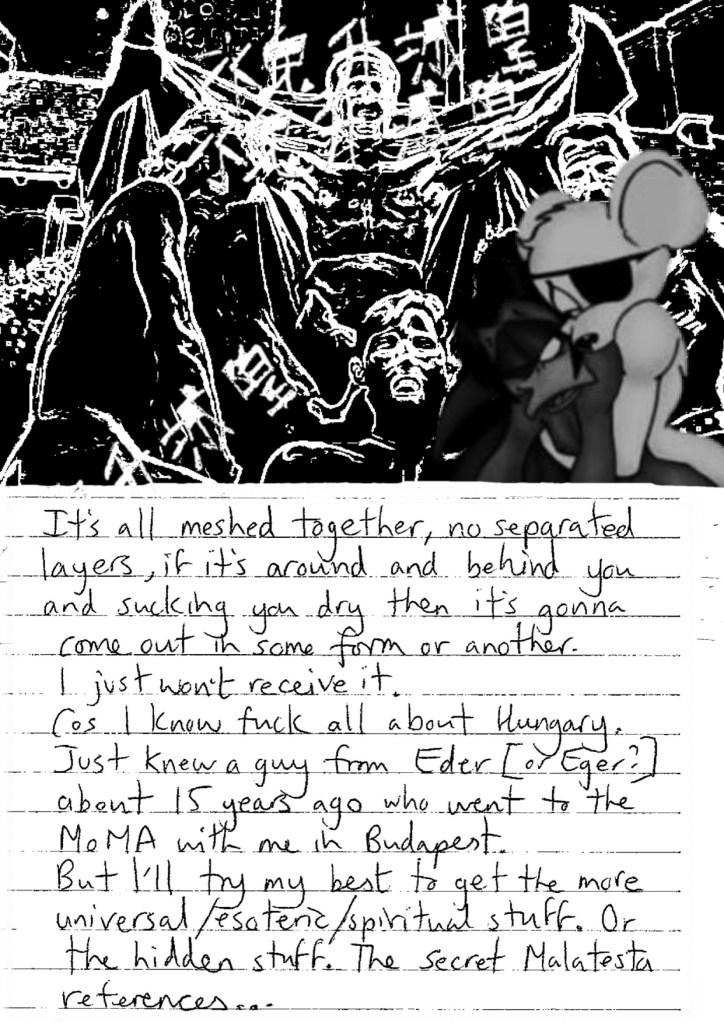 皇
It's all meshed together, no separated
layers, if it's around and behind you
and sucking you dry then it's gonna
come out in some form or another.
I just won't receive it.
Cos I know fuck all about Hungary.
Just knew a guy from Eder [or Eger?]
about 15 years ago who went to the
MoMA with me in Budapest.
But I'll try my best to get the more
universal/esoteric/spiritual stuff. Or
the hidden stuff. The secret Malatesta
references...